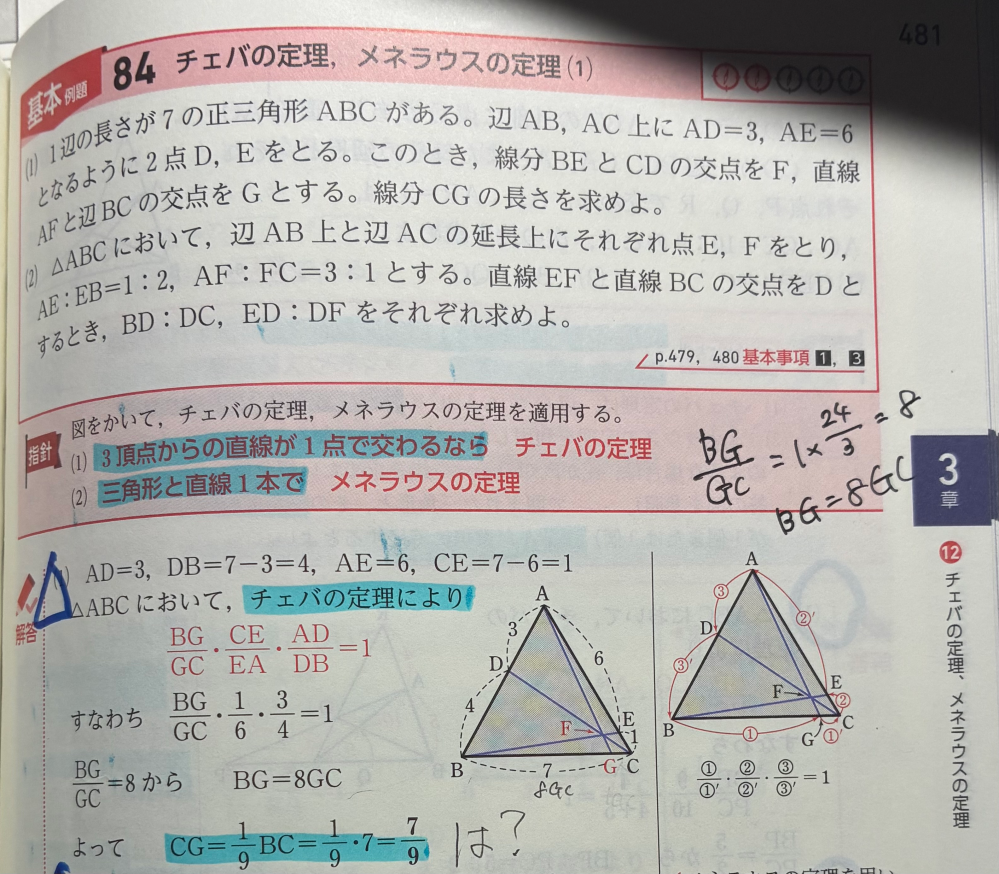 481
基本 例題 84 チェバの定理，メネラウスの定理(1)
(1) 1辺の長さが7の正三角形ABCがある。辺AB，AC上にAD=3，AE=6
となるように2点D，Eをとる。このとき，線分BEとCDの交点をF，直線
AFと辺BCの交点をGとする。線分CGの長さを求めよ。
(2) △ABCにおいて，辺AB上と辺ACの延長上にそれぞれ点E，Fをとり，
AE：EB=1：2，AF：FC=3：1とする。直線EFと直線BCの交点をDと
するとき，BD：DC，ED：DFをそれぞれ求めよ。
p.479，480 基本事項 1，3
指針
図をかいて，チェバの定理，メネラウスの定理を適用する。
(1) 3頂点からの直線が1点で交わるなら チェバの定理
(2) 三角形と直線1本で メネラウスの定理
BG/GC = 1× 24/3 = 8
BG=8GC
3
章
12 チェバの定理、メネラウスの定理
解答
AD=3，DB=7−3=4，AE=6，CE=7−6=1
△ABCにおいて，チェバの定理により
BG/GC・CE/EA・AD/DB=1
すなわち BG/GC・1/6・3/4=1
BG/GC=8から BG=8GC
よって CG=1/9BC=1/9・7=7/9
は？
A
3
6
D
4
F
E
1
B
7
G
C
8GC
A
③
②′
D
③′
F
E
②
B
C
①
G
①′
①/①′・②/②′・③/③′=1